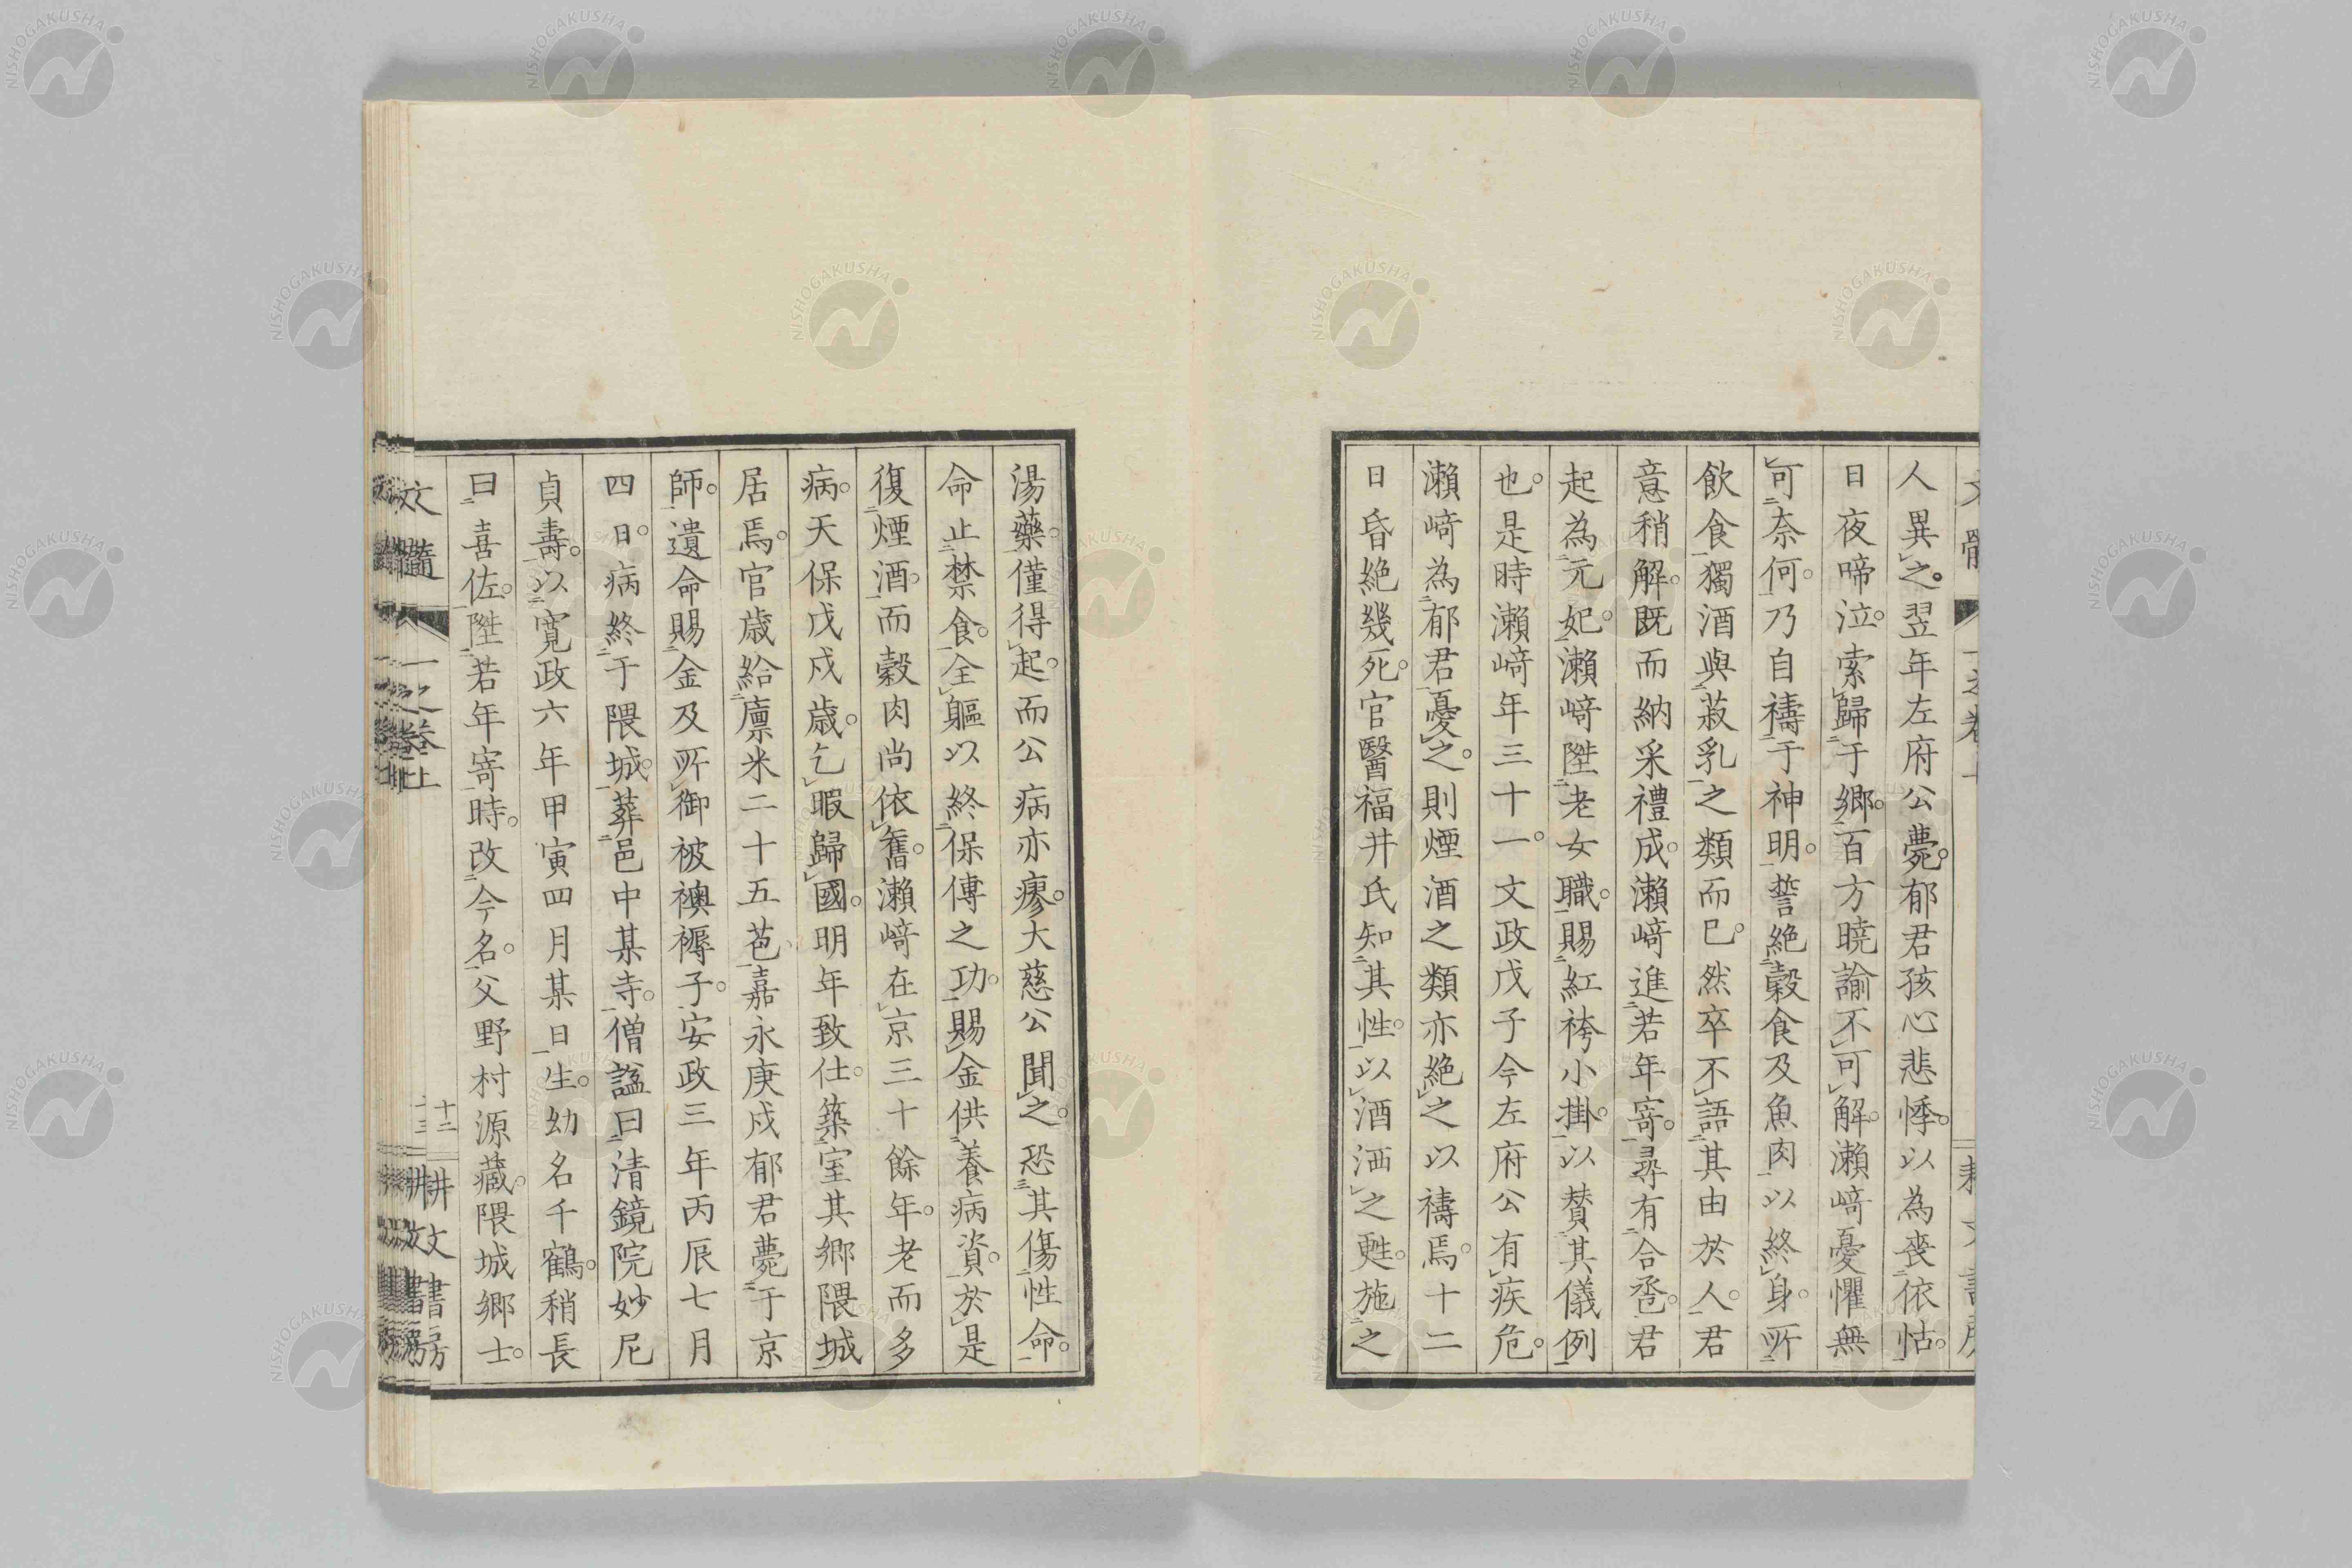 人異之。翌年左府公薨。郁君孩心悲悸。以為喪依怙。
日夜啼泣。索歸于郷。百方曉諭不可解。瀨﨑憂懼無
可奈何。乃自禱于神明。誓絶穀食及魚肉以終身。所
飲食獨酒與菽乳之類而已。然卒不語其由於人。君
意稍解。既而納采禮成。瀨﨑進若年寄。尋有合巹。君
起為元妃。瀨﨑陞老女職。賜紅袴小掛。以賛其儀例
也。是時瀨﨑年三十一。文政戊子今左府公有疾危。
瀨﨑為郁君憂之。則煙酒之類亦絶之以禱焉。十二
日昏絶幾死。官醫福井氏知其性。以酒洒之甦。施之
湯藥。僅得起。而公病亦瘳。大慈公聞之。恐其傷性命。
命止禁食。全軀以終保傅之功。賜金供養病資。於是
復煙酒。而穀肉尚依舊。瀨﨑在京三十餘年。老而多
病。天保戊戌歳。乞暇歸國。明年致仕。築室其郷隈城
居焉。官歳給廪米二十五苞。嘉永庚戌郁君薨于京
師。遺命賜金及所御被襖褥子。安政三年丙辰七月
四日。病終于隈城。葬邑中某寺。僧諡曰清鏡院妙尼
貞壽。以寛政六年甲寅四月某日生。幼名千鶴。稍長
曰喜佐。陞若年寄時。改今名。父野村源藏。隈城郷士。
文髓 一之卷上 十二 耕文書房